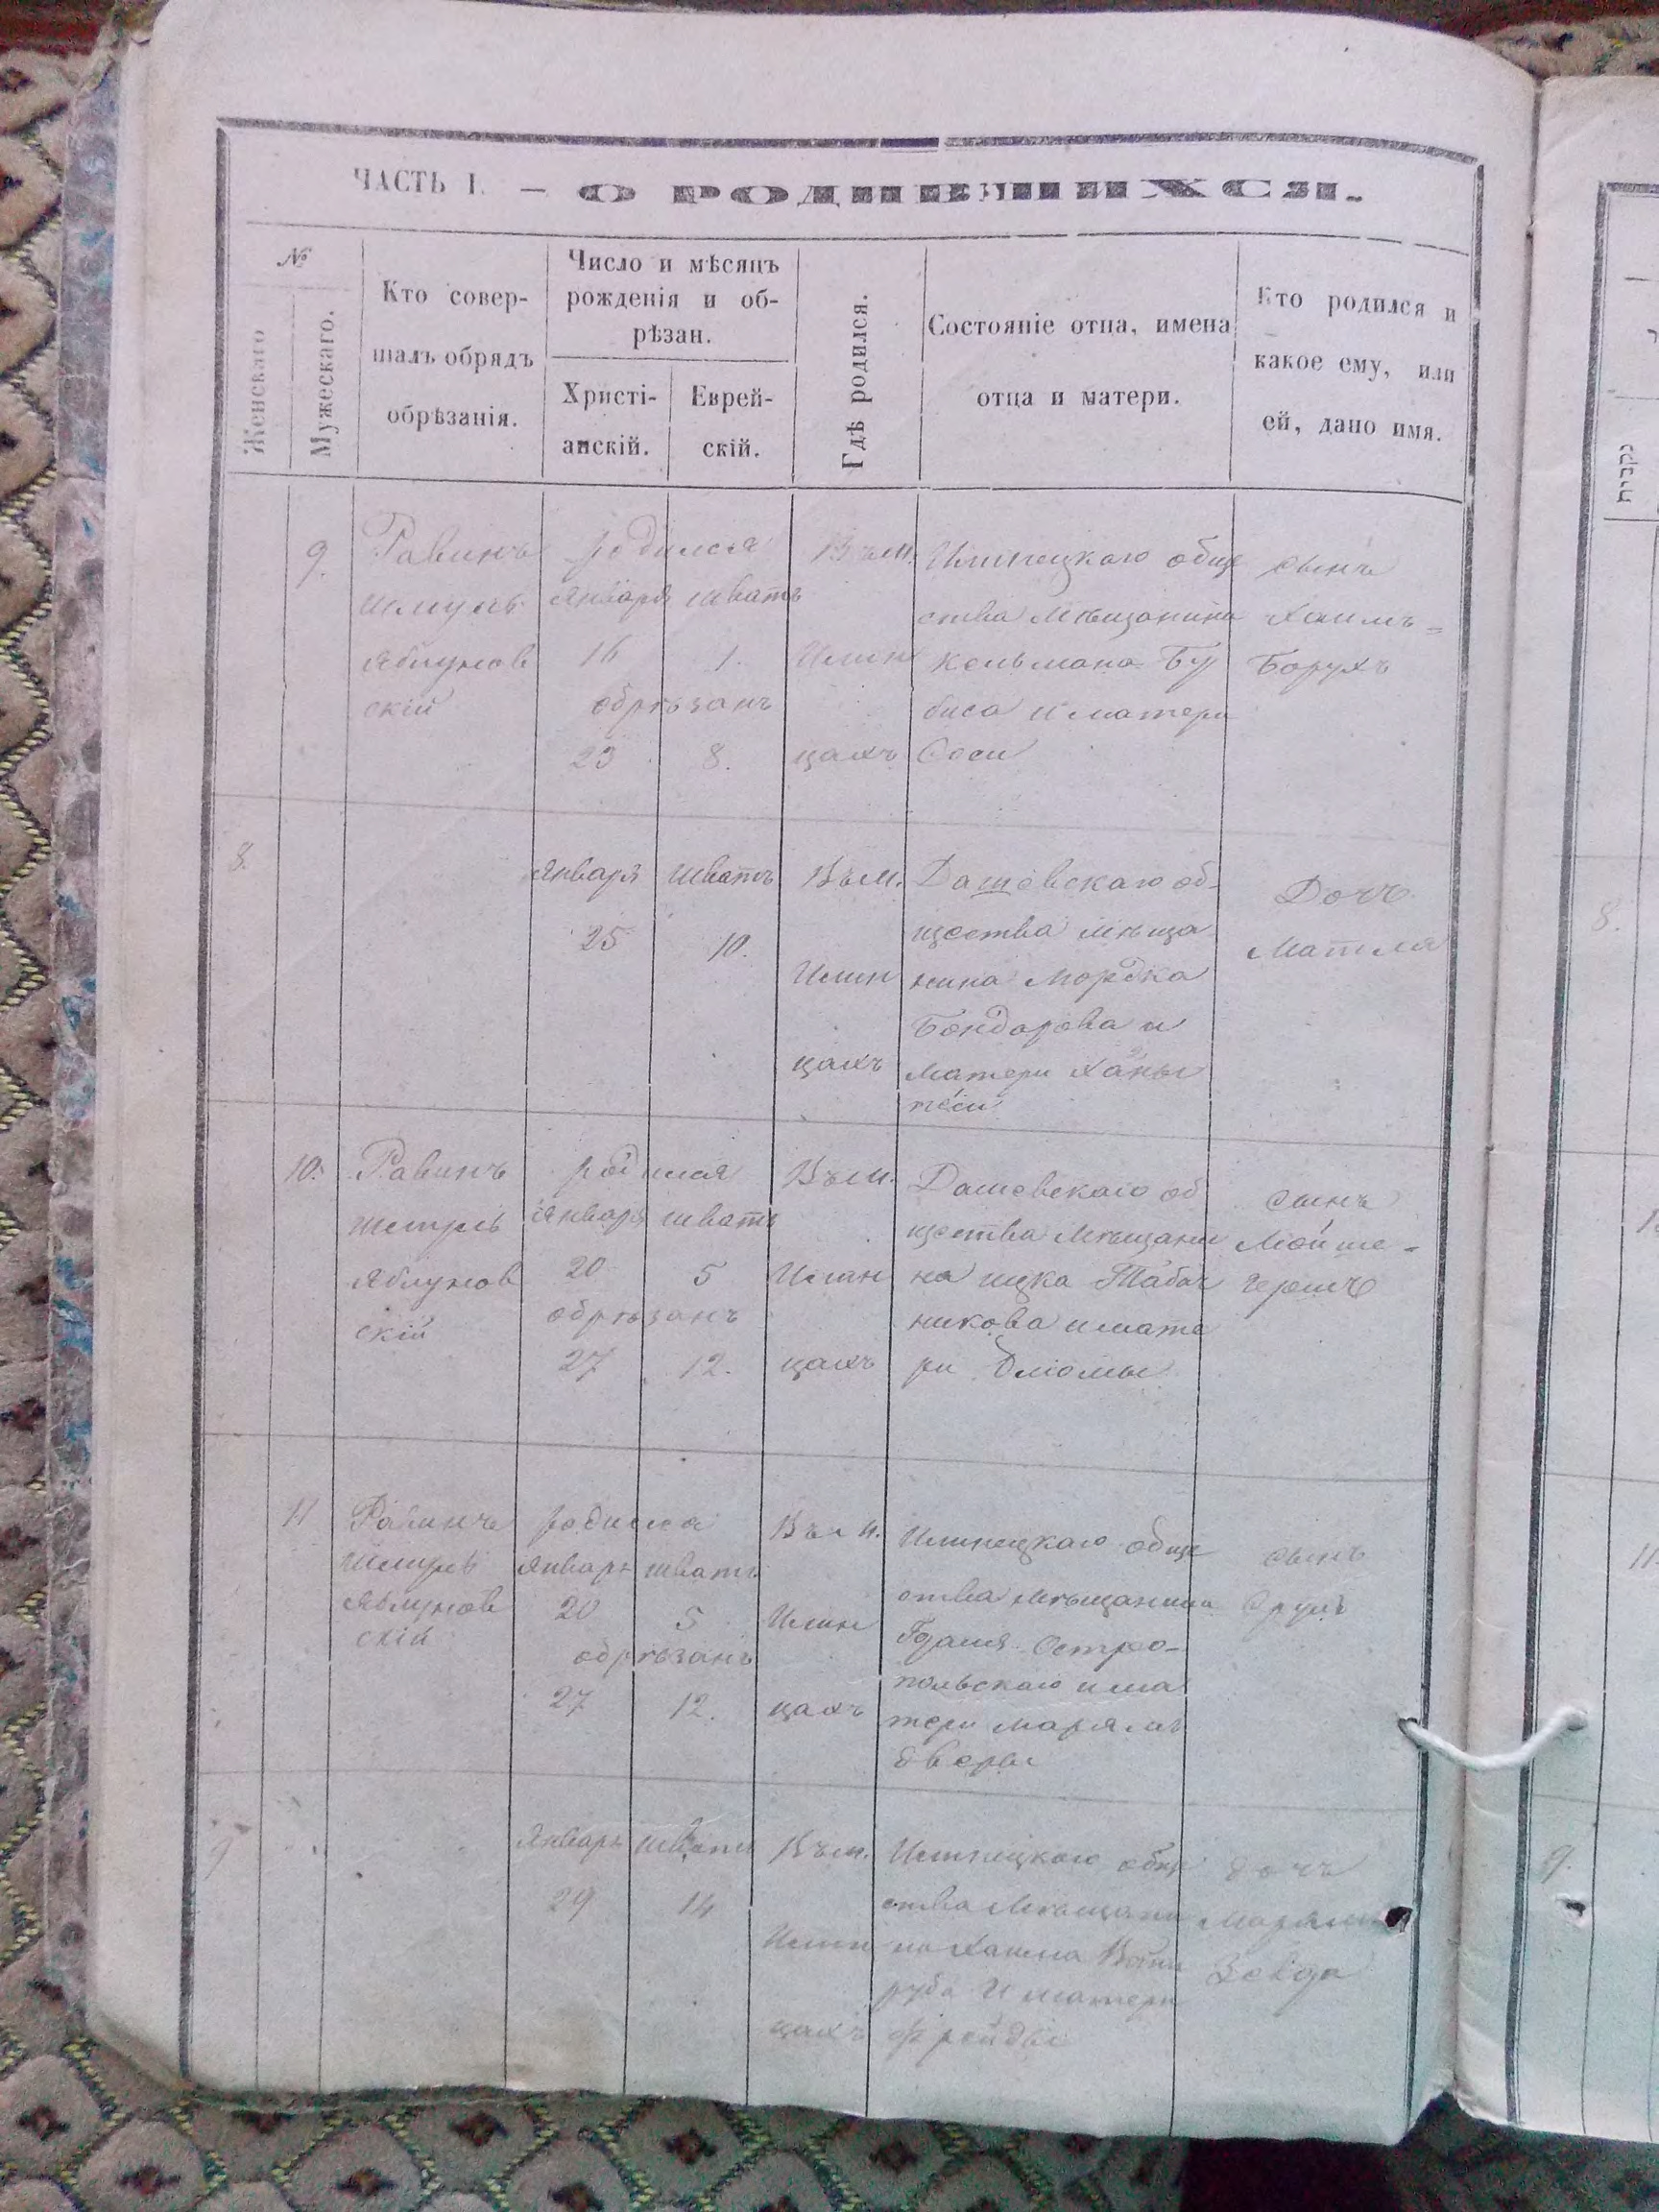 ЧАСТЬ I. — О РОДИВШИХСЯ.
№
Женскаго
Мужескаго.
Кто совер-
шалъ обрядъ
обрѣзанія.
Число и мѣсяцъ
рожденія и об-
рѣзан.
Христі-
анскій.
Еврей-
скій.
Гдѣ родился.
Состояніе отца, имена
отца и матери.
Кто родился и
какое ему, или
ей, дано имя.
9.
Равинъ
Шмуль
Яблунов
скій
родился
Января шватъ
16 1.
обрѣзанъ
23 8.
Въ м.
Илин
цахъ
Илинецкаго обще
ства мѣщанина
Кельмана Бу
биса и матери
Соси
сынъ
Хаимъ =
Борухъ
8.
Января Шватъ
25 10.
Въ м.
Илин
цахъ
Дашевскаго об-
щества мѣща
нина Мордка
Бондарова и
матери Ханы
теси
Дочь
Матля
10.
Равинъ
Яблунов
скій
родился
Января шватъ
20 5
обрѣзанъ
27 12.
Въ м.
Илин
цахъ
Дашевскаго об
щества мѣщани
на ицка Табач
никова и мате
ри Блюмы
сынъ
Мойше -
Гершъ
11
Равинъ
Яблунов
скій
родился
Января шватъ
20 5
обрѣзанъ
27 12.
Въ м.
Илин
цахъ
Илинецкаго обще
ства мѣщанина
Остро-
польскаго и ма
тери Марямъ
дверы
сынъ
Сруль
9
Января шватъ
29 14
Въ м.
Илин
цахъ
Илинецкаго обще
ства мѣщани
на Хаима
руба и матери
Фрейды
дочь
Марямъ
8.
11.
9.